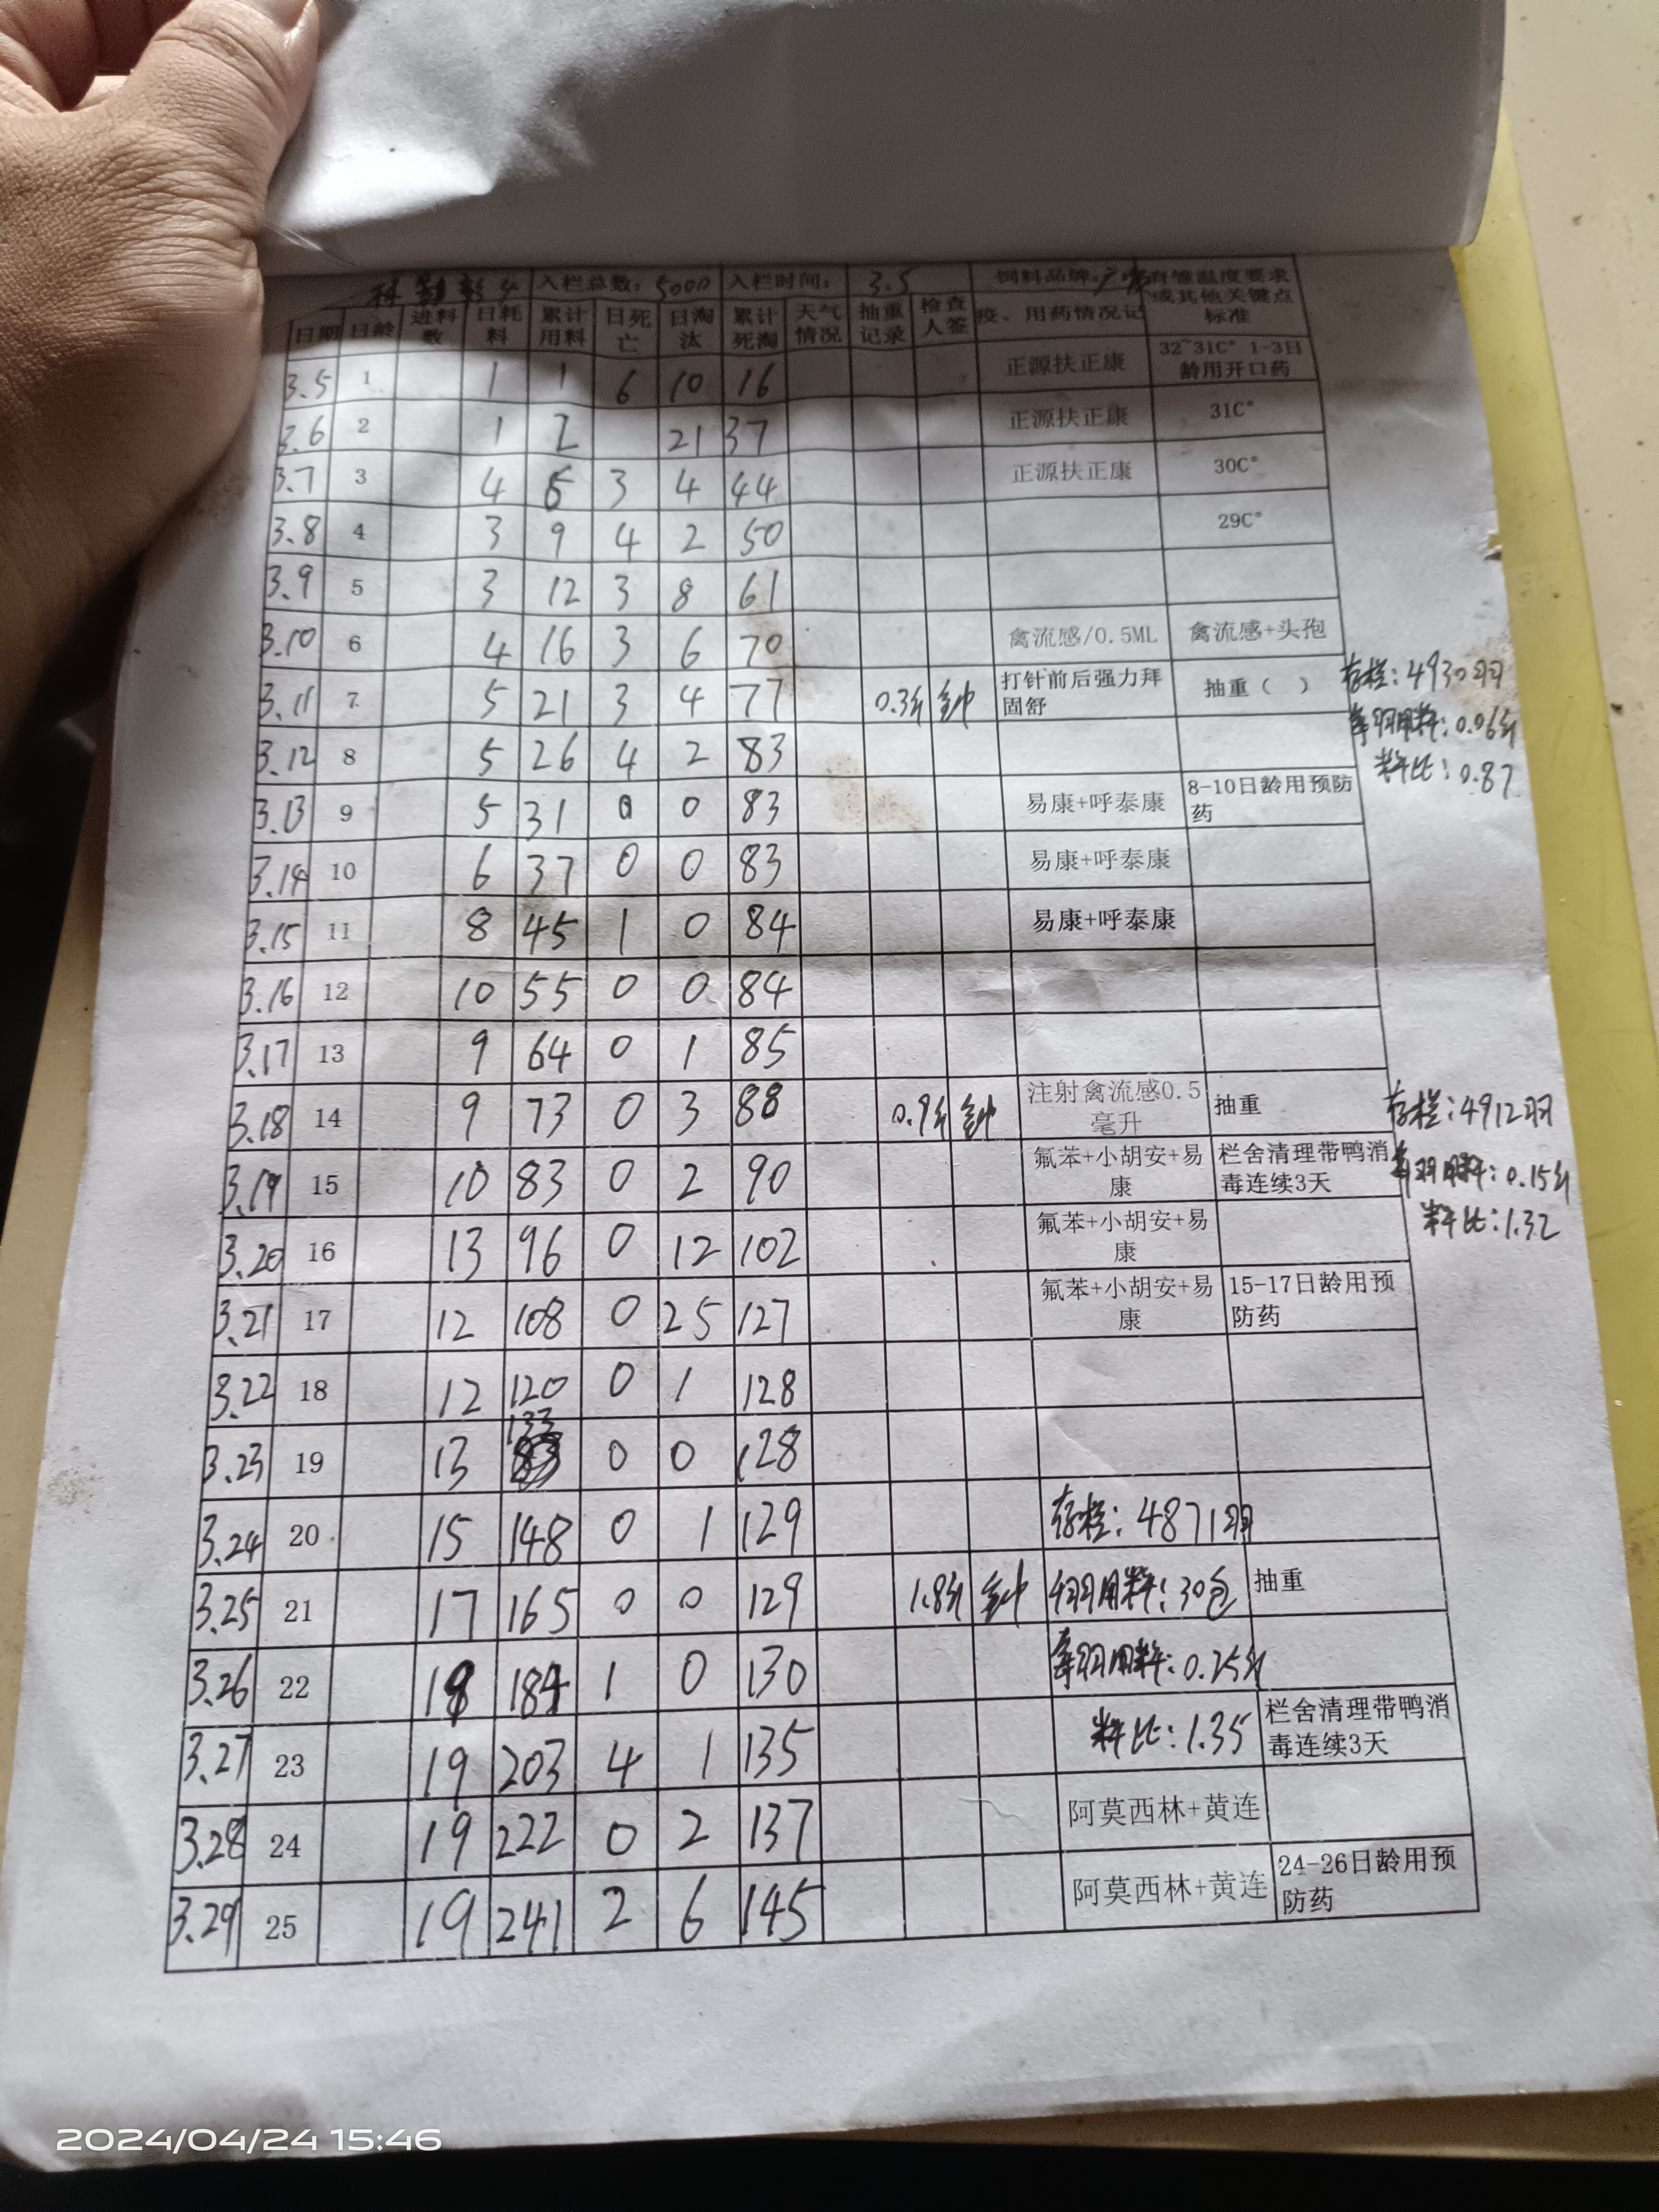 入栏总数: 5000 入栏时间: 3.5 饲料品牌: 育雏温度要求或其他关键点标准
日期 日龄 进料数 日耗料 累计用料 日死亡 日淘汰 累计死淘 天气情况 抽重记录 检查人签 疫、用药情况记
3.5 1 1 1 6 10 16 正源扶正康 32~31C° 1-3日龄用开口药
3.6 2 1 2 21 37 正源扶正康 31C°
3.7 3 4 6 3 4 44 正源扶正康 30C°
3.8 4 3 9 4 2 50 29C°
3.9 5 3 12 3 8 61
3.10 6 4 16 3 6 70 禽流感/0.5ML 禽流感+头孢
3.11 7 5 21 3 4 77 0.3斤 打针前后强力拜固舒 抽重（ ） 存栏:4930羽
每羽用料:0.06斤
料比:0.87
3.12 8 5 26 4 2 83
3.13 9 5 31 0 0 83 易康+呼泰康 8-10日龄用预防药
3.14 10 6 37 0 0 83 易康+呼泰康
3.15 11 8 45 1 0 84 易康+呼泰康
3.16 12 10 55 0 0 84
3.17 13 9 64 0 1 85
3.18 14 9 73 0 3 88 0.9斤 注射禽流感0.5毫升 抽重 存栏:4912羽
3.19 15 10 83 0 2 90 氟苯+小胡安+易康 栏舍清理带鸭消毒连续3天 每羽用料:0.15斤
料比:1.32
3.20 16 13 96 0 12 102 氟苯+小胡安+易康
3.21 17 12 108 0 25 127 氟苯+小胡安+易康 15-17日龄用预防药
3.22 18 12 120 0 1 128
3.23 19 13 133 0 0 128
3.24 20 15 148 0 1 129 存栏:4871羽
3.25 21 17 165 0 0 129 1.8斤 千羽用料:30包 抽重
3.26 22 18 184 1 0 130 每羽用料:0.25斤
3.27 23 19 203 4 1 135 料比:1.35 栏舍清理带鸭消毒连续3天
3.28 24 19 222 0 2 137 阿莫西林+黄连
3.29 25 19 241 2 6 145 阿莫西林+黄连 24-26日龄用预防药
2024/04/24 15:46